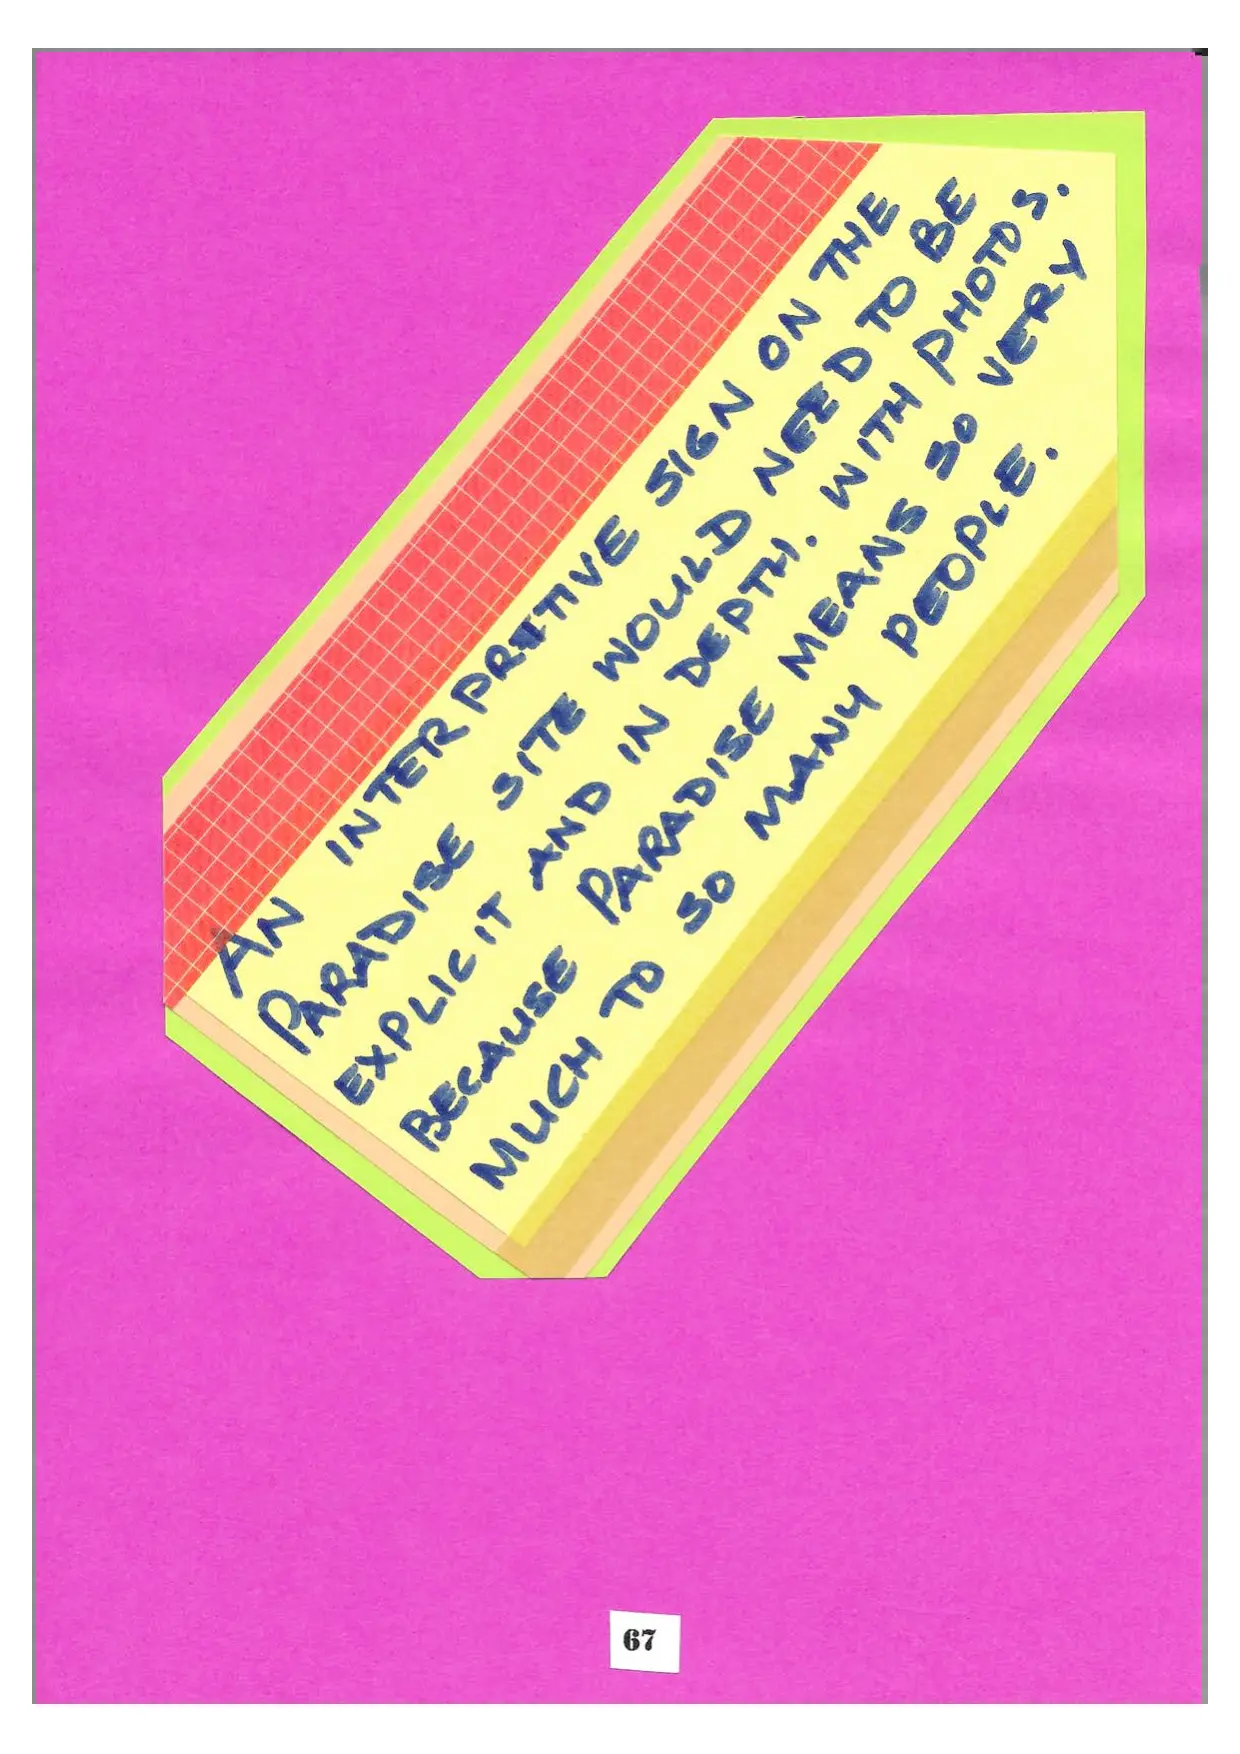 AN INTERPRETIVE SIGN ON THE
PARADISE SITE WOULD NEED TO BE
EXPLICIT AND IN DEPTH. WITH PHOTOS.
BECAUSE PARADISE MEANS SO VERY
MUCH TO SO MANY PEOPLE.
67